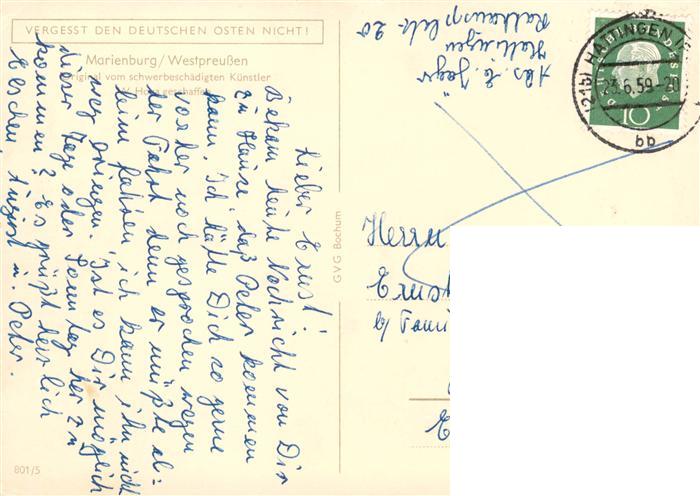 VERGESST DEN DEUTSCHEN OSTEN NICHT!
Marienburg/Westpreußen
Original vom schwerbeschädigten Künstler
geschaffen
Lieber Ernst!
Bekam heute Nachricht von Dir
zu Hause, daß Peter kommen
kann. Ich hätte Dich so gerne
vorher noch gesprochen wegen
der Fahrt denn er müßte al-
leine fahren, ich kann ihn nicht
weg bringen. Ist es Dir möglich
dieser Tage oder Sonntag her zu
kommen? Es grüßt herzlich
August u. Peter.
801/5
GVG Bochum
Abs. E. Jäger
Hattingen
Rathausplatz 20
(21b) HATTINGEN
23.6.59-20
bb
DEUTSCHE BUNDESPOST
10
Herrn
E
b/ Fami
E